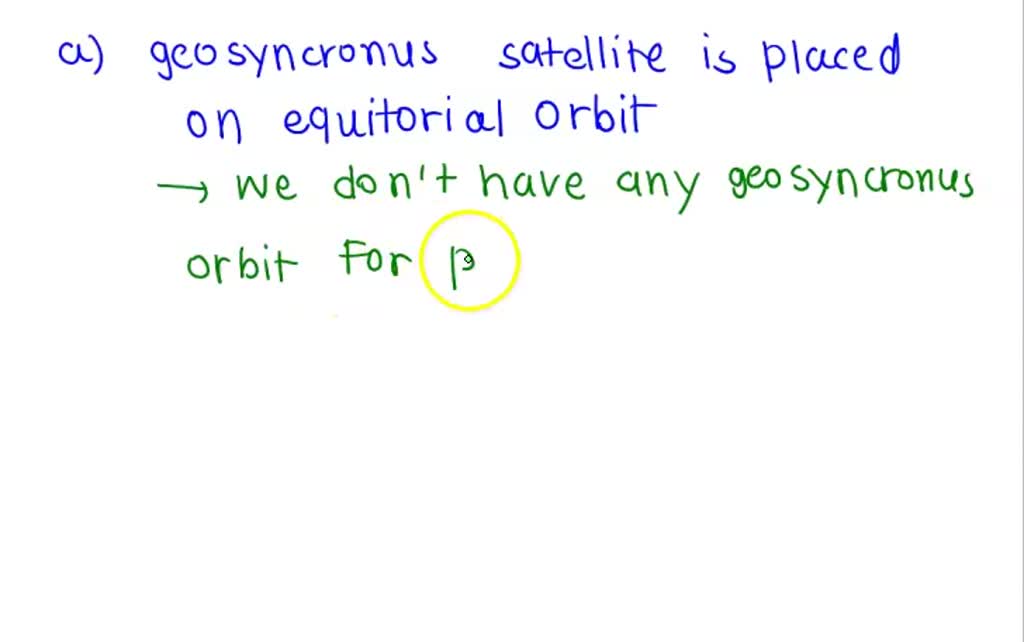 a) geosyncronus satellite is placed
on equitorial orbit
→ we don't have any geosyncronus
orbit for p